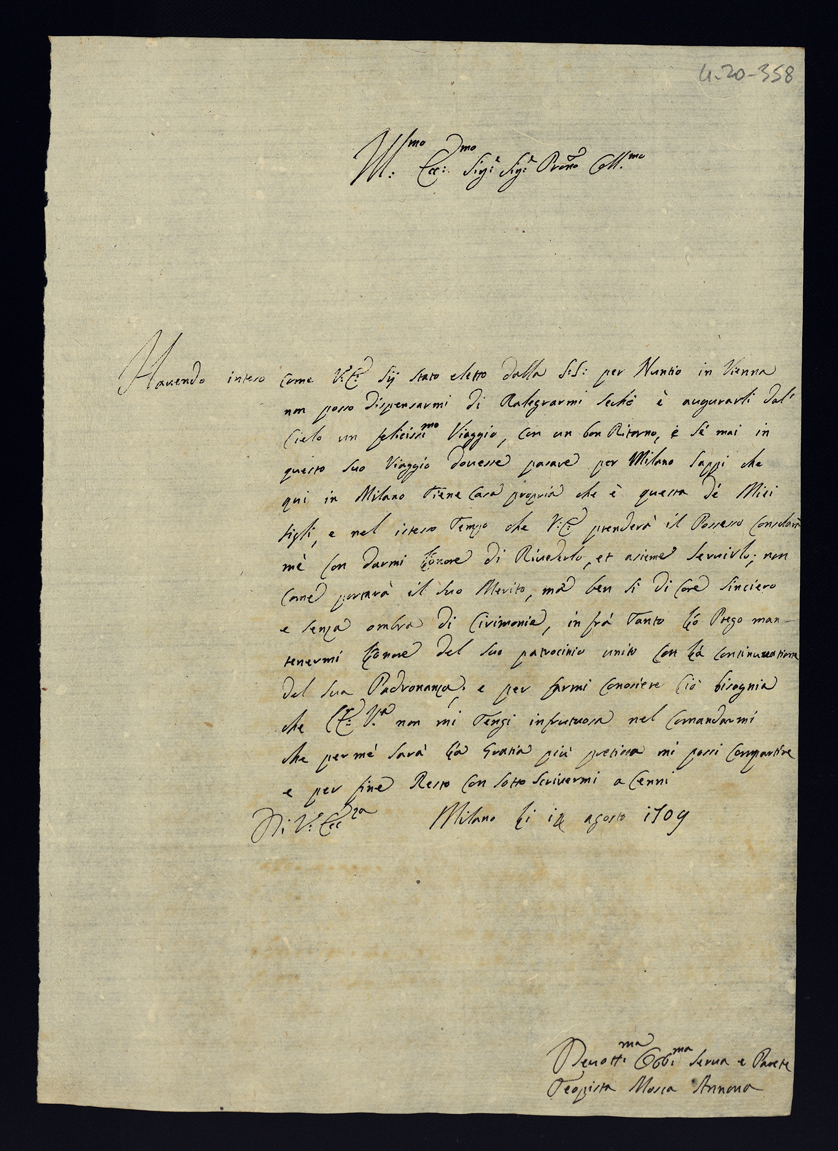 4-20-358
Ill:mo Ecc:mo Sig:r Sig:r Prone Coll.mo
Havendo inteso come V:E: sij stato eletto dalla S:S: per Nuntio in Vienna
non posso dispensarmi di Ralegrarmi seco è augurarli dal
Cielo un felicissimo Viaggio, con un bon Ritorno, è sé mai in
questo suo Viaggio dovesse pasare per Milano sappi che
qui in Milano tiene casa propria che è questa dé Miei
figli, e nel istesso tempo che V:E: prenderà il Possesso consolarà
mé con darmi l'honore di Riuederlo, et asieme seruirlo, non
come portarà il suo Merito, mà ben si di core sinciero
e senza ombra di Cirimonia, in frà tanto Lo Prego man-
tenermi l'honore del suo patrocinio unito con la continuatione
del sua Padronanza, e per farmi conosiere ciò bisognia
che Ecc: V:a non mi tengi infrutuosa nel comandarmi
che per mé sarà la Gratia più pretiosa mi possi compartire
e per fine Resto con sotto scrivermi a cenni
Di V: Ecc:za Milano li 14 agosto 1709
Deuott:ma Obb:ma Serua e Parete
Teopista Mosca Annona